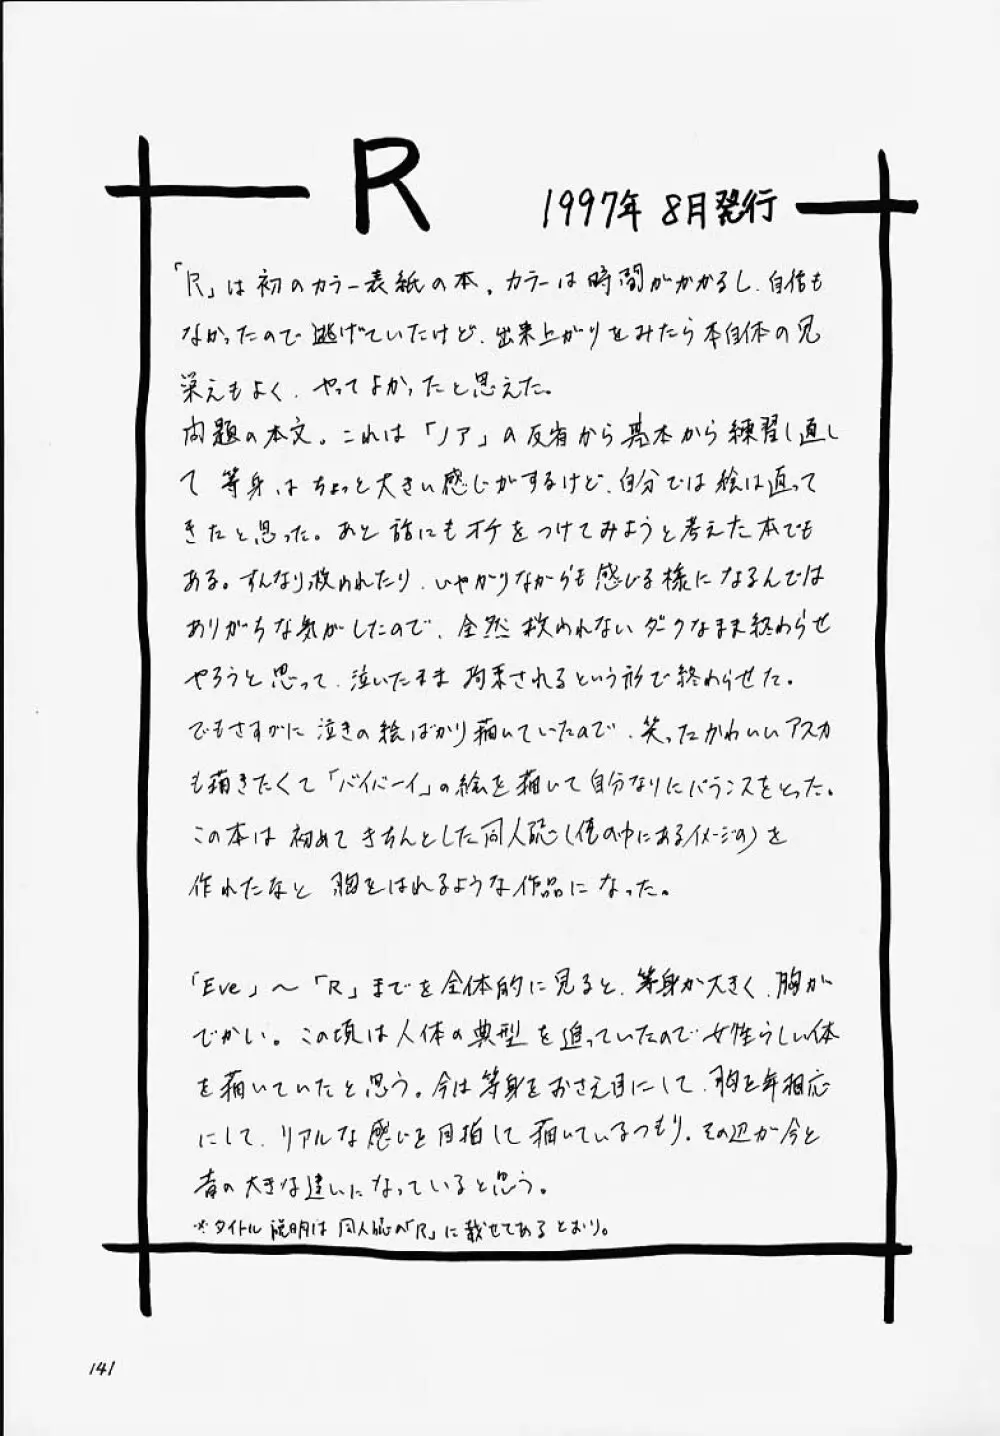 R
1997年 8月発行
「R」は初のカラー表紙の本。カラーは時間がかかるし、自信も
なかったので逃げていたけど、出来上がりをみたら本自体の見
栄えもよく、やってよかったと思えた。
問題の本文。これは「ノア」の反省から基本から練習し直し
て等身はちょっと大きい感じがするけど、自分では絵は直って
きたと思った。あと話にもオチをつけてみようと考えた本でも
ある。すんなり救われたり、いやがりながらも感じる様になるんでは
ありがちな気がしたので、全然救われないダークなまま終わらせ
やろうと思って、泣いたまま拘束されるという形で終わらせた。
でもさすがに泣きの絵ばかり描いていたので、笑ったかわいいアスカ
も描きたくて「バイバーイ」の絵を描いて自分なりにバランスをとった。
この本は初めてきちんとした同人誌(僕の中にあるイメージの)を
作れたなと胸をはれるような作品になった。
「Eve」〜「R」までを全体的に見ると、等身が大きく、胸が
でかい。この頃は人体の典型を追っていたので女性らしい体
を描いていたと思う。今は等身をおさえ目にして、胸を年相応
にして、リアルな感じを目指して描いているつもり。その辺が今と
昔の大きな違いになっていると思う。
※タイトル説明は同人誌の「R」に載せてあるとおり。
141